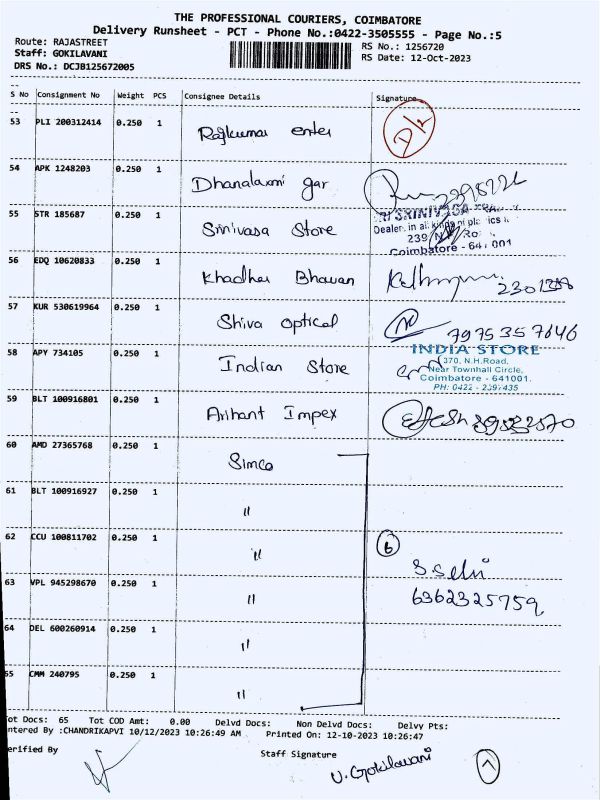 THE PROFESSIONAL COURIERS, COIMBATORE
Delivery Runsheet - PCT - Phone No.:0422-3505555 - Page No.:5
Route: RAJASTREET
Staff: GOKILAVANI
DRS No.: DCJB125672005
RS No.: 1256720
RS Date: 12-Oct-2023
S No Consignment No Weight PCS Consignee Details Signature
53 PLI 200312414 0.250 1 Rajkumar enter
54 APK 1248203 0.250 1 Dhanalaxmi gar
55 STR 185687 0.250 1 Srinivasa Store
SRI SRINIVASA
Dealer in all kinds of plastics
239
Coimbatore - 641 001
56 EDQ 10620833 0.250 1 Khadhar Bhavan
57 KUR 530619964 0.250 1 Shiva optical 7975357646
58 APY 734105 0.250 1 Indian Store
INDIA STORE
370, N.H.Road,
Near Townhall Circle,
Coimbatore - 641001.
PH: 0422 - 2397435
59 BLT 100916801 0.250 1 Arihant Impex
60 AMD 27365768 0.250 1 Simco
61 BLT 100916927 0.250 1 "
62 CCU 100811702 0.250 1 " 6
S Selvi
63 VPL 945298670 0.250 1 " 6362325759
64 DEL 600260914 0.250 1 "
65 CMM 240795 0.250 1 "
Tot Docs: 65 Tot COD Amt: 0.00 Delvd Docs: Non Delvd Docs: Delvy Pts:
Entered By :CHANDRIKAPVI 10/12/2023 10:26:49 AM Printed On: 12-10-2023 10:26:47
Verified By Staff Signature
U. Gokilavani